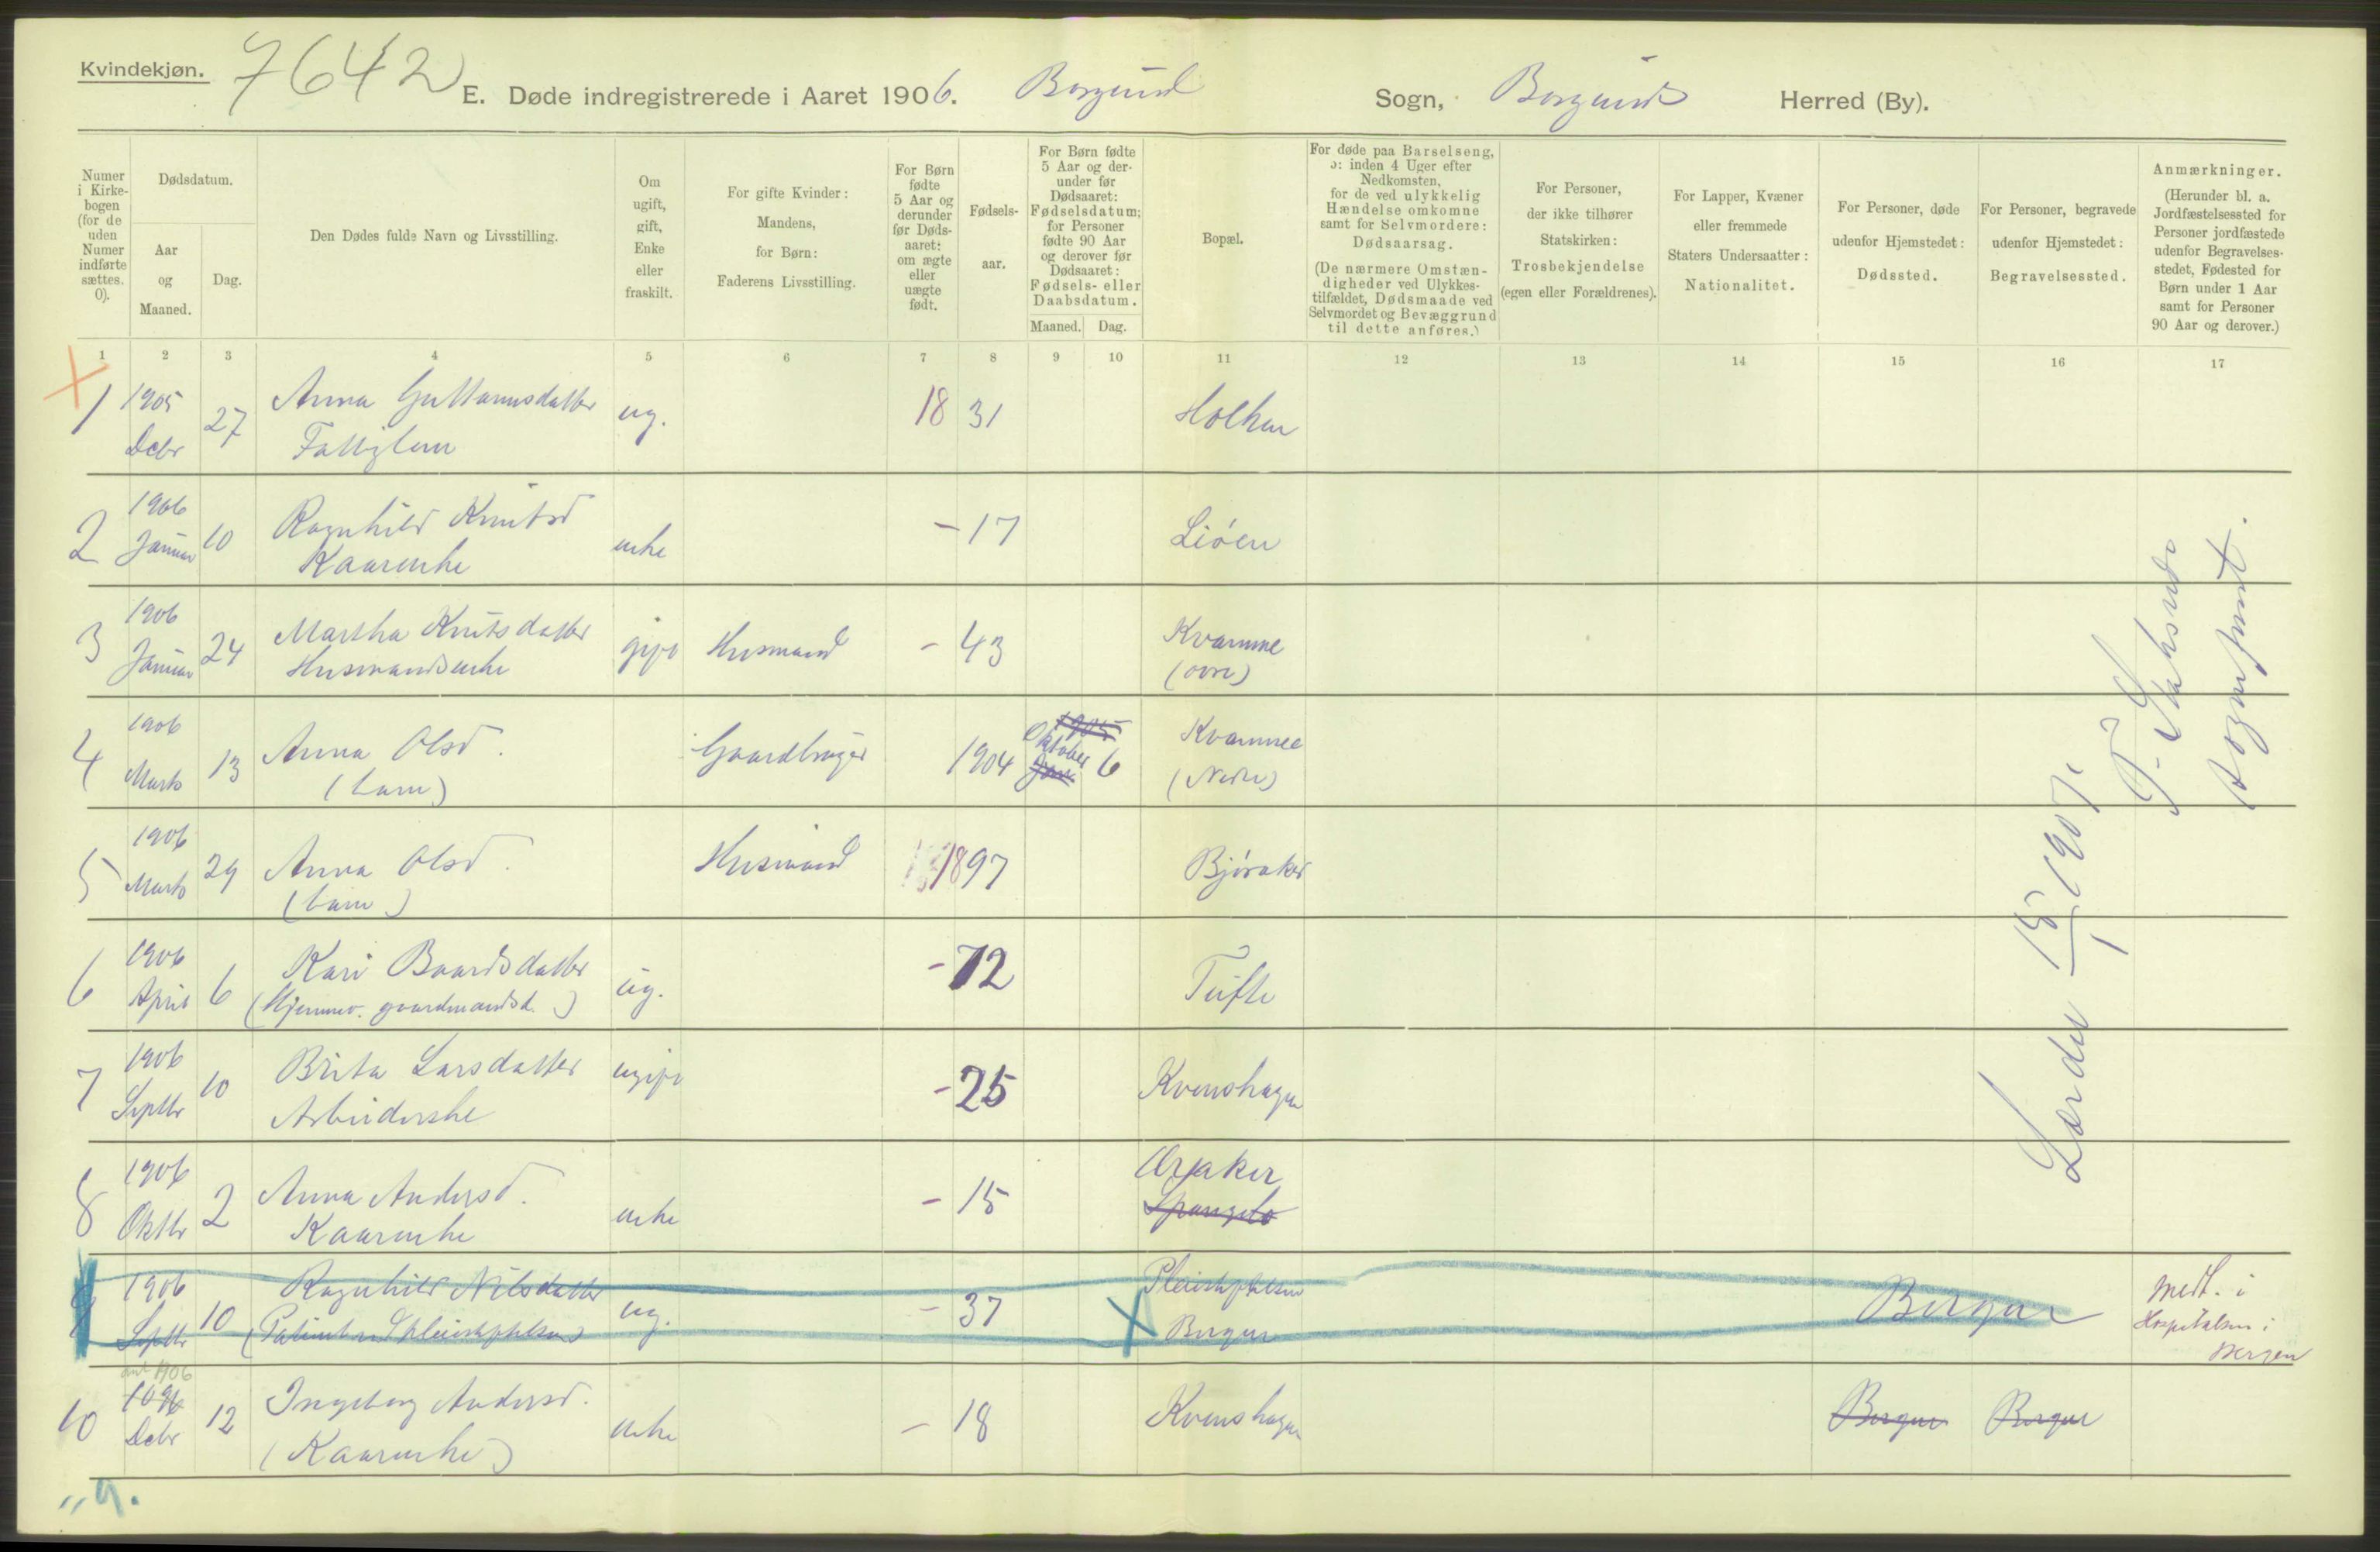 Kvindekjøn.
7642
E. Døde indregistrerede i Aaret 1906. Borgund Sogn, Borgund Herred (By).
Numer i Kirke-bogen (for de uden Numer indførte sættes. 0).
Dødsdatum.
Aar og Maaned.
Dag.
Den Dødes fulde Navn og Livsstilling.
Om ugift, gift, Enke eller fraskilt.
For gifte Kvinder: Mandens, for Børn: Faderens Livsstilling.
For Børn fødte 5 Aar og derunder før Døds-aaret: om ægte eller uægte født.
Fødsels-aar.
For Børn fødte 5 Aar og der-under før Dødsaaret: Fødselsdatum; for Personer fødte 90 Aar og derover før Dødsaaret: Fødsels- eller Daabsdatum.
Maaned. Dag.
Bopæl.
For døde paa Barselseng, ɔ: inden 4 Uger efter Nedkomsten, for de ved ulykkelig Hændelse omkomne samt for Selvmordere: Dødsaarsag.
(De nærmere Omstæn-digheder ved Ulykkes-tilfældet, Dødsmaade ved Selvmordet og Bevæggrund til dette anføres.)
For Personer, der ikke tilhører Statskirken: Trosbekjendelse (egen eller Forældrenes).
For Lapper, Kvæner eller fremmede Staters Undersaatter: Nationalitet.
For Personer, døde udenfor Hjemstedet: Dødssted.
For Personer, begravede udenfor Hjemstedet: Begravelsessted.
Anmærkninger.
(Herunder bl. a. Jordfæstelsessted for Personer jordfæstede udenfor Begravelses-stedet, Fødested for Børn under 1 Aar samt for Personer 90 Aar og derover.)
1 2 3 4 5 6 7 8 9 10 11 12 13 14 15 16 17
1 1905 Debr 27 Anna Guttormsdatter ug. 18 31 Holken
Fattiglem
2 1906 Januar 10 Ragnhild Knutsd enke - 17 Liøen
Kaarenke
3 1906 Januar 24 Martha Knutsdatter gift Husmand - 43 Kvamme
Husmandsenke (øvre)
4 1906 Marts 13 Anna Olsd. Gaardbruger 1904 1905 Oktober Jan. 6 Kvamme
(barn) (Nedre)
5 1906 Marts 29 Anna Olsd. Husmand 1897 Bjøraker
(barn)
6 1906 April 6 Kari Baardsdatter ug. - 72 Tufte
(Hjemmev. gaardmandsd.)
7 1906 Septbr 10 Brita Larsdatter ugift - 25 Kvenshagen
Arbeiderske
8 1906 Oktbr 2 Anna Andersd. enke - 15 Øraker
Kaarenke Spangelo
9 1906 Septbr 10 Ragnhild Nilsdatter ug. - 37 Pleiestiftelsen Bergen Bergen medt. i Hospitalsm i Bergen
(Patient ved Pleiestiftelsen)
ant 1906
10 Debr 12 Ingeborg Andersd. enke - 18 Kvenshagen Bergen Bergen
(Kaarenke)
„ 9.
Lærdal 15/1 1907
sogneprest.